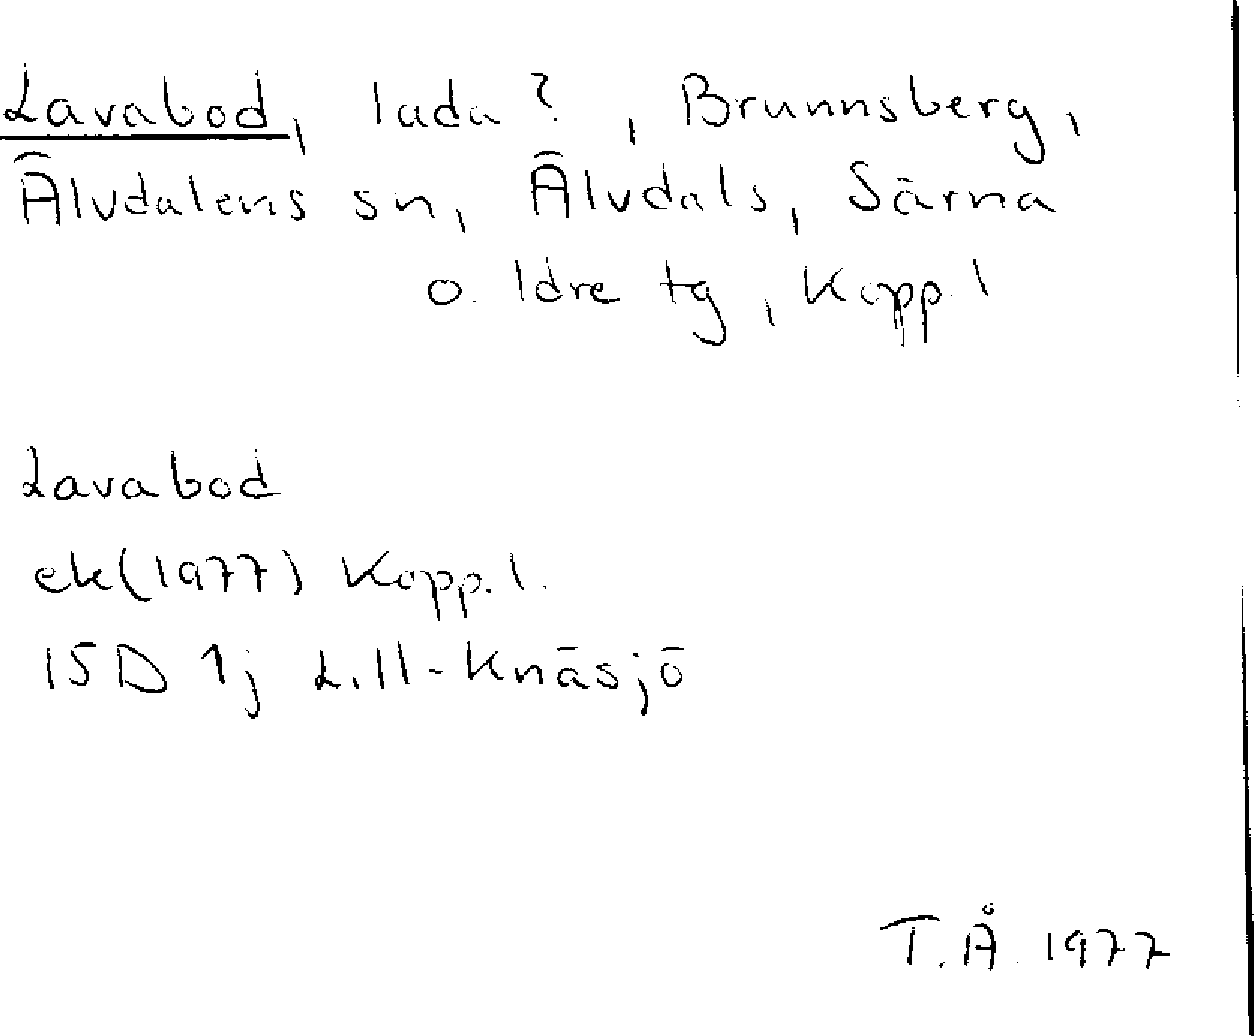 Lavabod, lada?, Brunnsberg,
Älvdalens sn, Älvdals, Särna
o. Idre tg, Kopp. l
Lavabod
ek(1977) Kopp. l.
15D 1j Lill-Knäsjö
T.Å. 1977